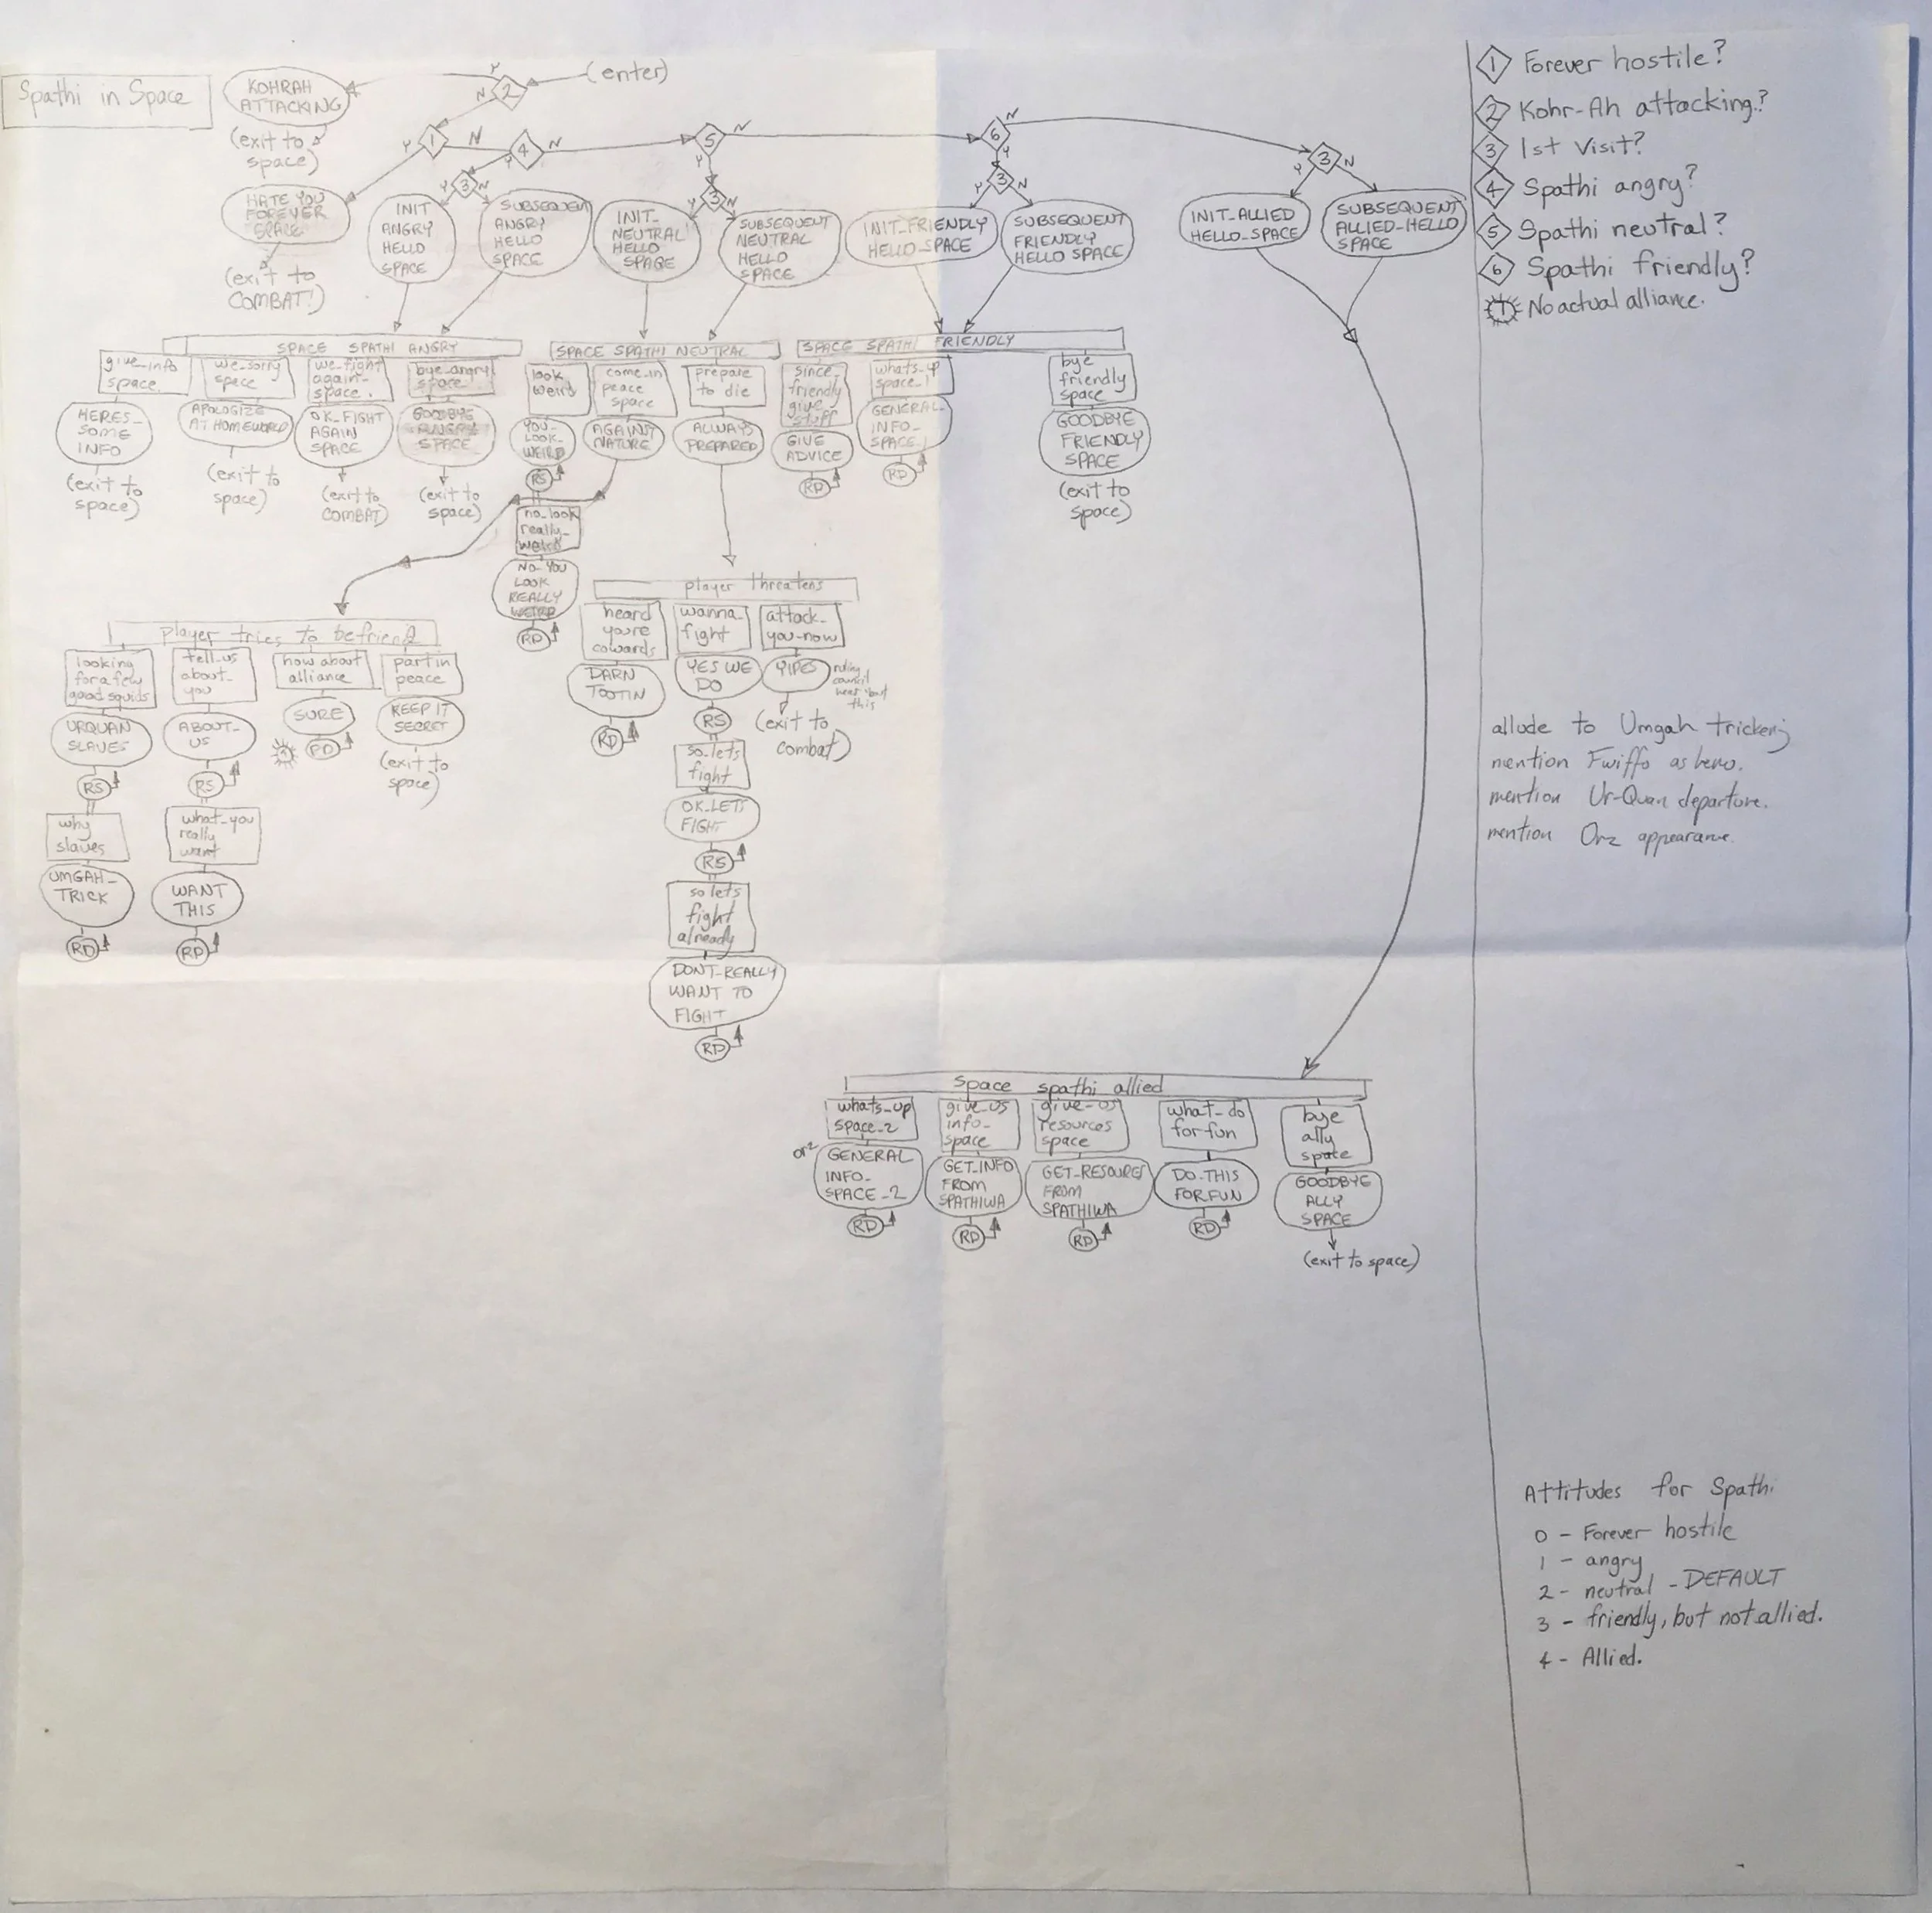 Spathi in Space
KOHRAH
ATTACKING
(exit to
space)
(enter)
Y
2
N
Y
1
N
4
N
Y
5
N
Y
6
N
Y
Y
3
N
Y
3
N
Y
3
N
Y
3
N
HATE YOU
FOREVER
SPACE
(exit to
COMBAT!)
INIT
ANGRY
HELLO
SPACE
SUBSEQUENT
ANGRY
HELLO
SPACE
INIT_
NEUTRAL
HELLO
SPACE
SUBSEQUENT
NEUTRAL
HELLO
SPACE
INIT_FRIENDLY
HELLO_SPACE
SUBSEQUENT
FRIENDLY
HELLO SPACE
INIT_ALLIED
HELLO_SPACE
SUBSEQUENT
ALLIED_HELLO
SPACE
SPACE SPATHI ANGRY
give_info
space
HERES_
SOME
INFO
(exit to
space)
we_sorry
space
APOLOGIZE
AT HOMEWORLD
(exit to
space)
we_fight
again_
space
OK_FIGHT
AGAIN
SPACE
(exit to
COMBAT)
bye_angry
space
GOODBYE
ANGRY
SPACE
(exit to
space)
SPACE SPATHI NEUTRAL
look
weird
YOU_
LOOK_
WEIRD
RS
no_look
really_
weird
NO_YOU
LOOK
REALLY
WEIRD
RD
come_in
peace
space
AGAINST
NATURE
prepare
to die
ALWAYS
PREPARED
SPACE SPATHI FRIENDLY
since_
friendly
give_
stuff
GIVE
ADVICE
RD
whats_up
space_1
GENERAL_
INFO_
SPACE_1
RD
bye
friendly
space
GOODBYE
FRIENDLY
SPACE
(exit to
space)
player tries to befriend
looking
for a few
good squids
URQUAN
SLAVES
RS
why
slaves
UMGAH_
TRICK
RD
tell_us
about_
you
ABOUT_
US
RS
what_you
really
want
WANT
THIS
RD
how about
alliance
SURE
RD
part in
peace
KEEP IT
SECRET
(exit to
space)
player threatens
heard
youre
cowards
DARN
TOOTIN
RD
wanna_
fight
YES WE
DO
RS
so_lets
fight
OK_LETS
FIGHT
RS
so lets
fight
already
DONT_REALLY
WANT TO
FIGHT
RD
attack_
you_now
YIPES
ruling
council
(exit to
combat)
space spathi allied
whats_up
space_2
GENERAL
INFO_
SPACE_2
RD
give_us
info_
space
GET_INFO
FROM
SPATHIWA
RD
give_us
resources
space
GET_RESOURCES
FROM
SPATHIWA
RD
what_do
for fun
DO_THIS
FOR FUN
RD
bye
ally
space
GOODBYE
ALLY
SPACE
(exit to space)
1 Forever hostile?
2 Kohr-Ah attacking?
3 1st Visit?
4 Spathi angry?
5 Spathi neutral?
6 Spathi friendly?
1 No actual alliance.
allude to Umgah trickery
mention Fwiffo as hero.
mention Ur-Quan departure.
mention Orz appearance.
Attitudes for Spathi
0 - Forever hostile
1 - angry
2 - neutral - DEFAULT
3 - friendly, but not allied.
4 - Allied.